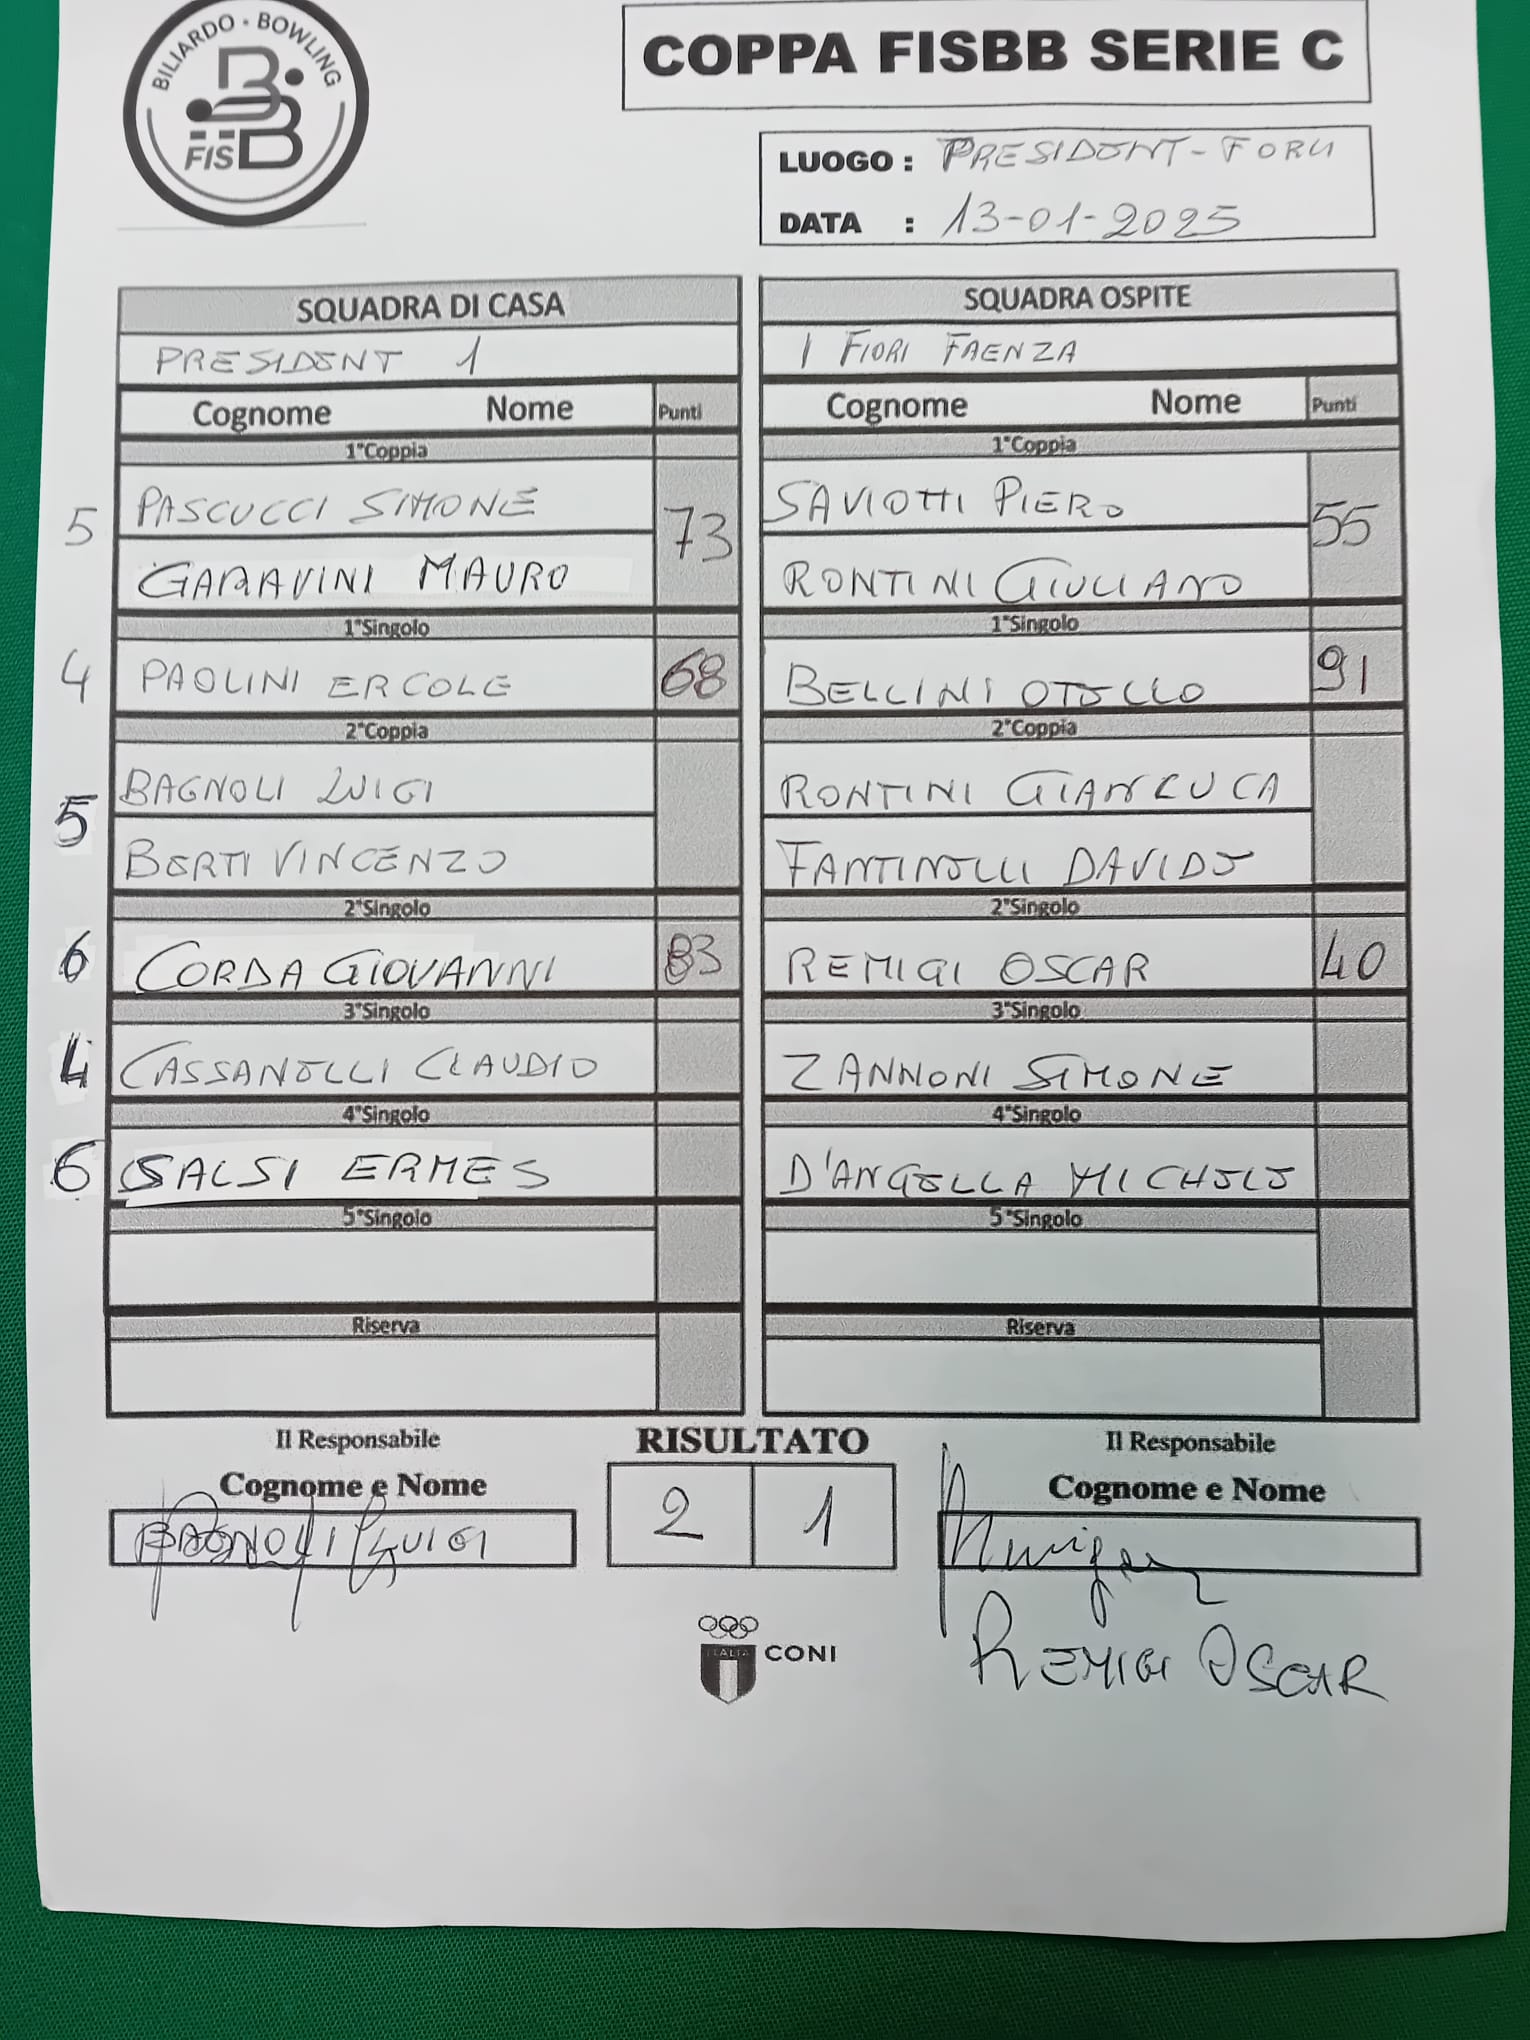 BILIARDO • BOWLING
FISBB
COPPA FISBB SERIE C
LUOGO : PRESIDENT - FORLI
DATA : 13-01-2025
SQUADRA DI CASA
PRESIDENT 1
Cognome Nome Punti
1°Coppia
5 PASCUCCI SIMONE 73
GARAVINI MAURO
1°Singolo
4 PAOLINI ERCOLE 68
2°Coppia
5 BAGNOLI LUIGI
BERTI VINCENZO
2°Singolo
6 CORDA GIOVANNI 83
3°Singolo
4 CASSANELLI CLAUDIO
4°Singolo
6 SALSI ERMES
5°Singolo
Riserva
SQUADRA OSPITE
I FIORI FAENZA
Cognome Nome Punti
1°Coppia
SAVIOTTI PIERO 55
RONTINI GIULIANO
1°Singolo
BELLINI OTELLO 91
2°Coppia
RONTINI GIANLUCA
FANTINELLI DAVIDE
2°Singolo
REMIGI OSCAR 40
3°Singolo
ZANNONI SIMONE
4°Singolo
D'ANGELLA MICHELE
5°Singolo
Riserva
Il Responsabile
Cognome e Nome
BAGNOLI LUIGI
RISULTATO
2 1
Il Responsabile
Cognome e Nome
REMIGI OSCAR
ITALIA
CONI